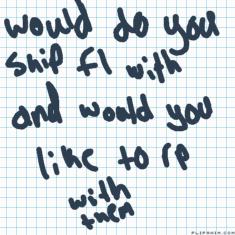 would do you
ship f1 with
and would you
like to rp
with
them
FLIPANIM.COM